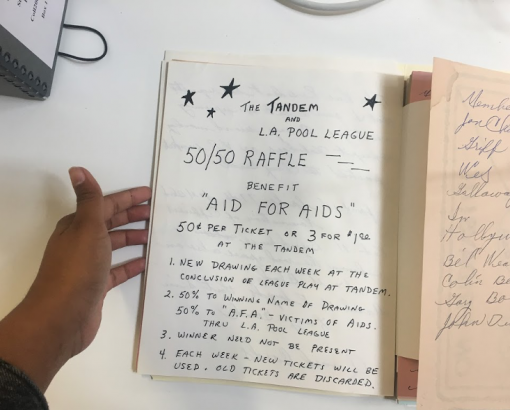 THE TANDEM
AND
L.A. POOL LEAGUE
50/50 RAFFLE
BENEFIT
"AID FOR AIDS"
50¢ PER TICKET OR 3 FOR $1.00
AT THE TANDEM
1. NEW DRAWING EACH WEEK AT THE
CONCLUSION OF LEAGUE PLAY AT TANDEM.
2. 50% TO WINNING NAME OF DRAWING
50% TO "A.F.A." - VICTIMS OF AIDS.
THRU L.A. POOL LEAGUE
3. WINNER NEED NOT BE PRESENT
4. EACH WEEK - NEW TICKETS WILL BE
USED. OLD TICKETS ARE DISCARDED.
Griff
Wes
Colin
John